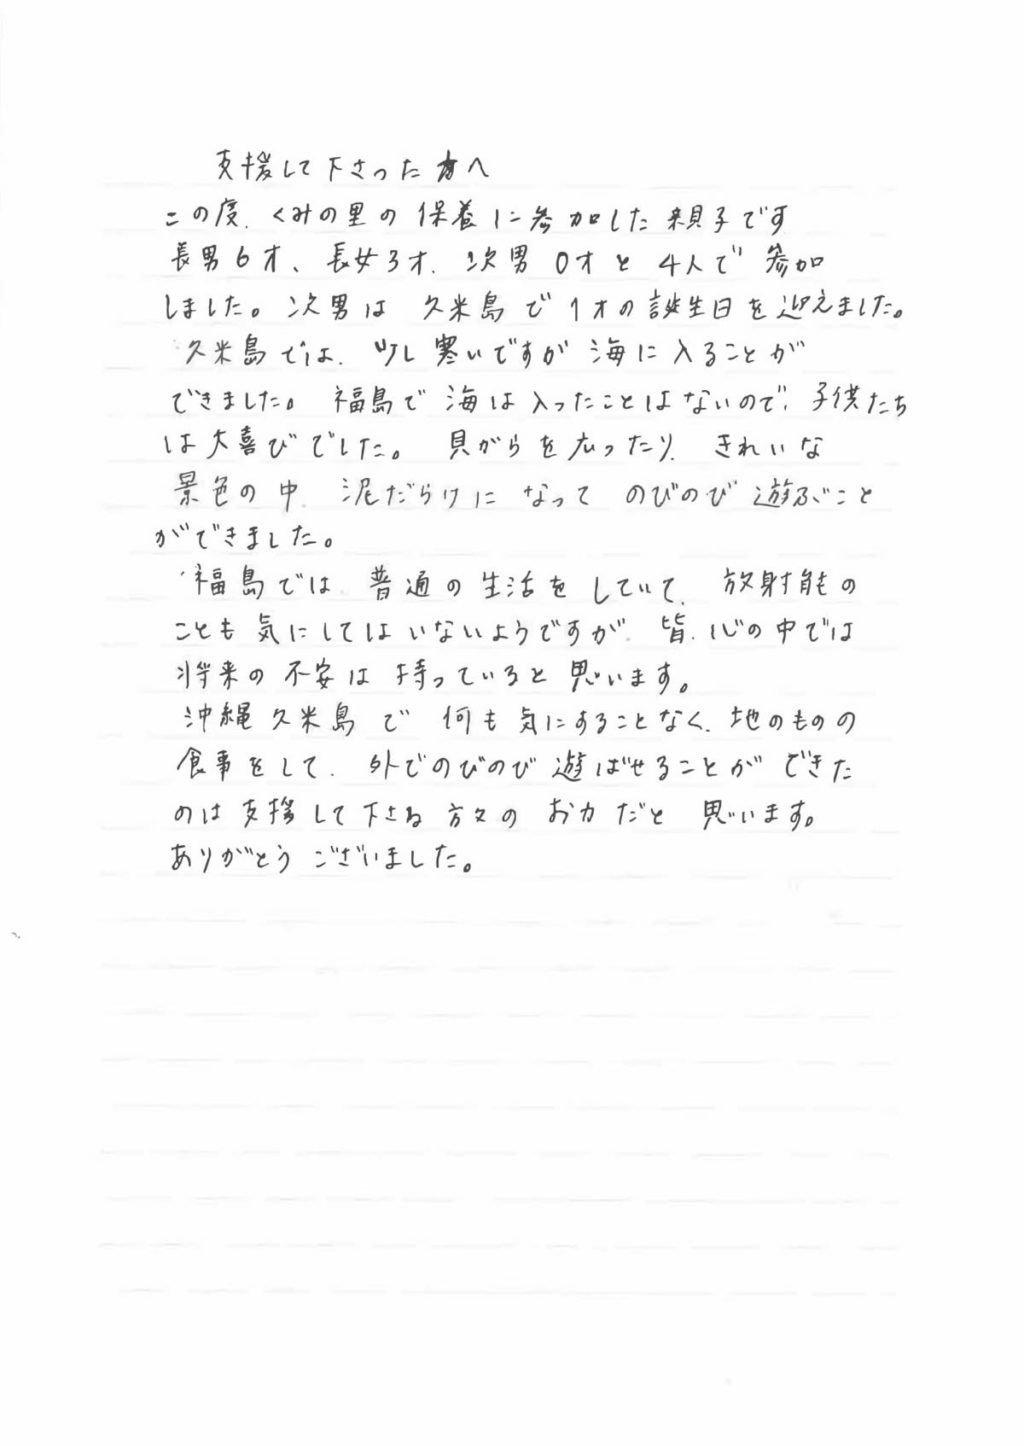 支援して下さった方へ
この度、くみの里の保養に参加した親子です
長男6才、長女3才、次男0才と4人で参加
しました。次男は久米島で1才の誕生日を迎えました。
久米島では、少し寒いですが海に入ることが
できました。福島で海は入ったことはないので、子供たち
は大喜びでした。貝がらを広ったり、きれいな
景色の中、泥だらけになってのびのび遊ぶこと
ができました。
福島では、普通の生活をしていて、放射能の
ことも気にしてはいないようですが、皆、心の中では
将来の不安は持っていると思います。
沖縄久米島で何も気にすることなく、地のものの
食事をして、外でのびのび遊ばせることができた
のは支援して下さる方々のお力だと思います。
ありがとうございました。